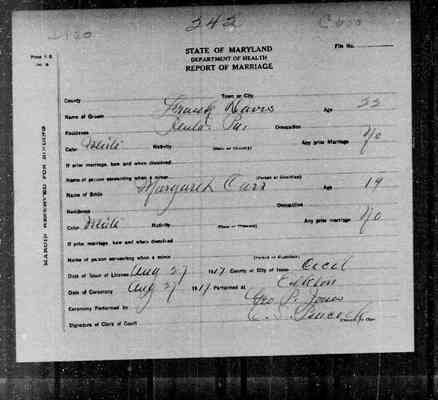 242
STATE OF MARYLAND
DEPARTMENT OF HEALTH
REPORT OF MARRIAGE
File No.
MARGIN RESERVED FOR BINDING
County Town or City
Name of Groom Frank Davis Age 22
Residence Phila. Pa. Occupation
Color White Nativity (State or Country) Any prior Marriage No
If prior marriage, how and when dissolved
Name of person consenting when a minor (Parent or Guardian)
Name of Bride Margaret Carr Age 19
Residence Occupation
Color White Nativity (State or Country) Any prior marriage No
If prior marriage, how and when dissolved
Name of person consenting when a minor (Parent or Guardian)
Date of Issue of License Aug 27 1917 County or City of Issue Cecil
Date of Ceremony Aug 27 1917 Performed at Elkton
Ceremony Performed by Geo. P. Jones
Signature of Clerk of Court